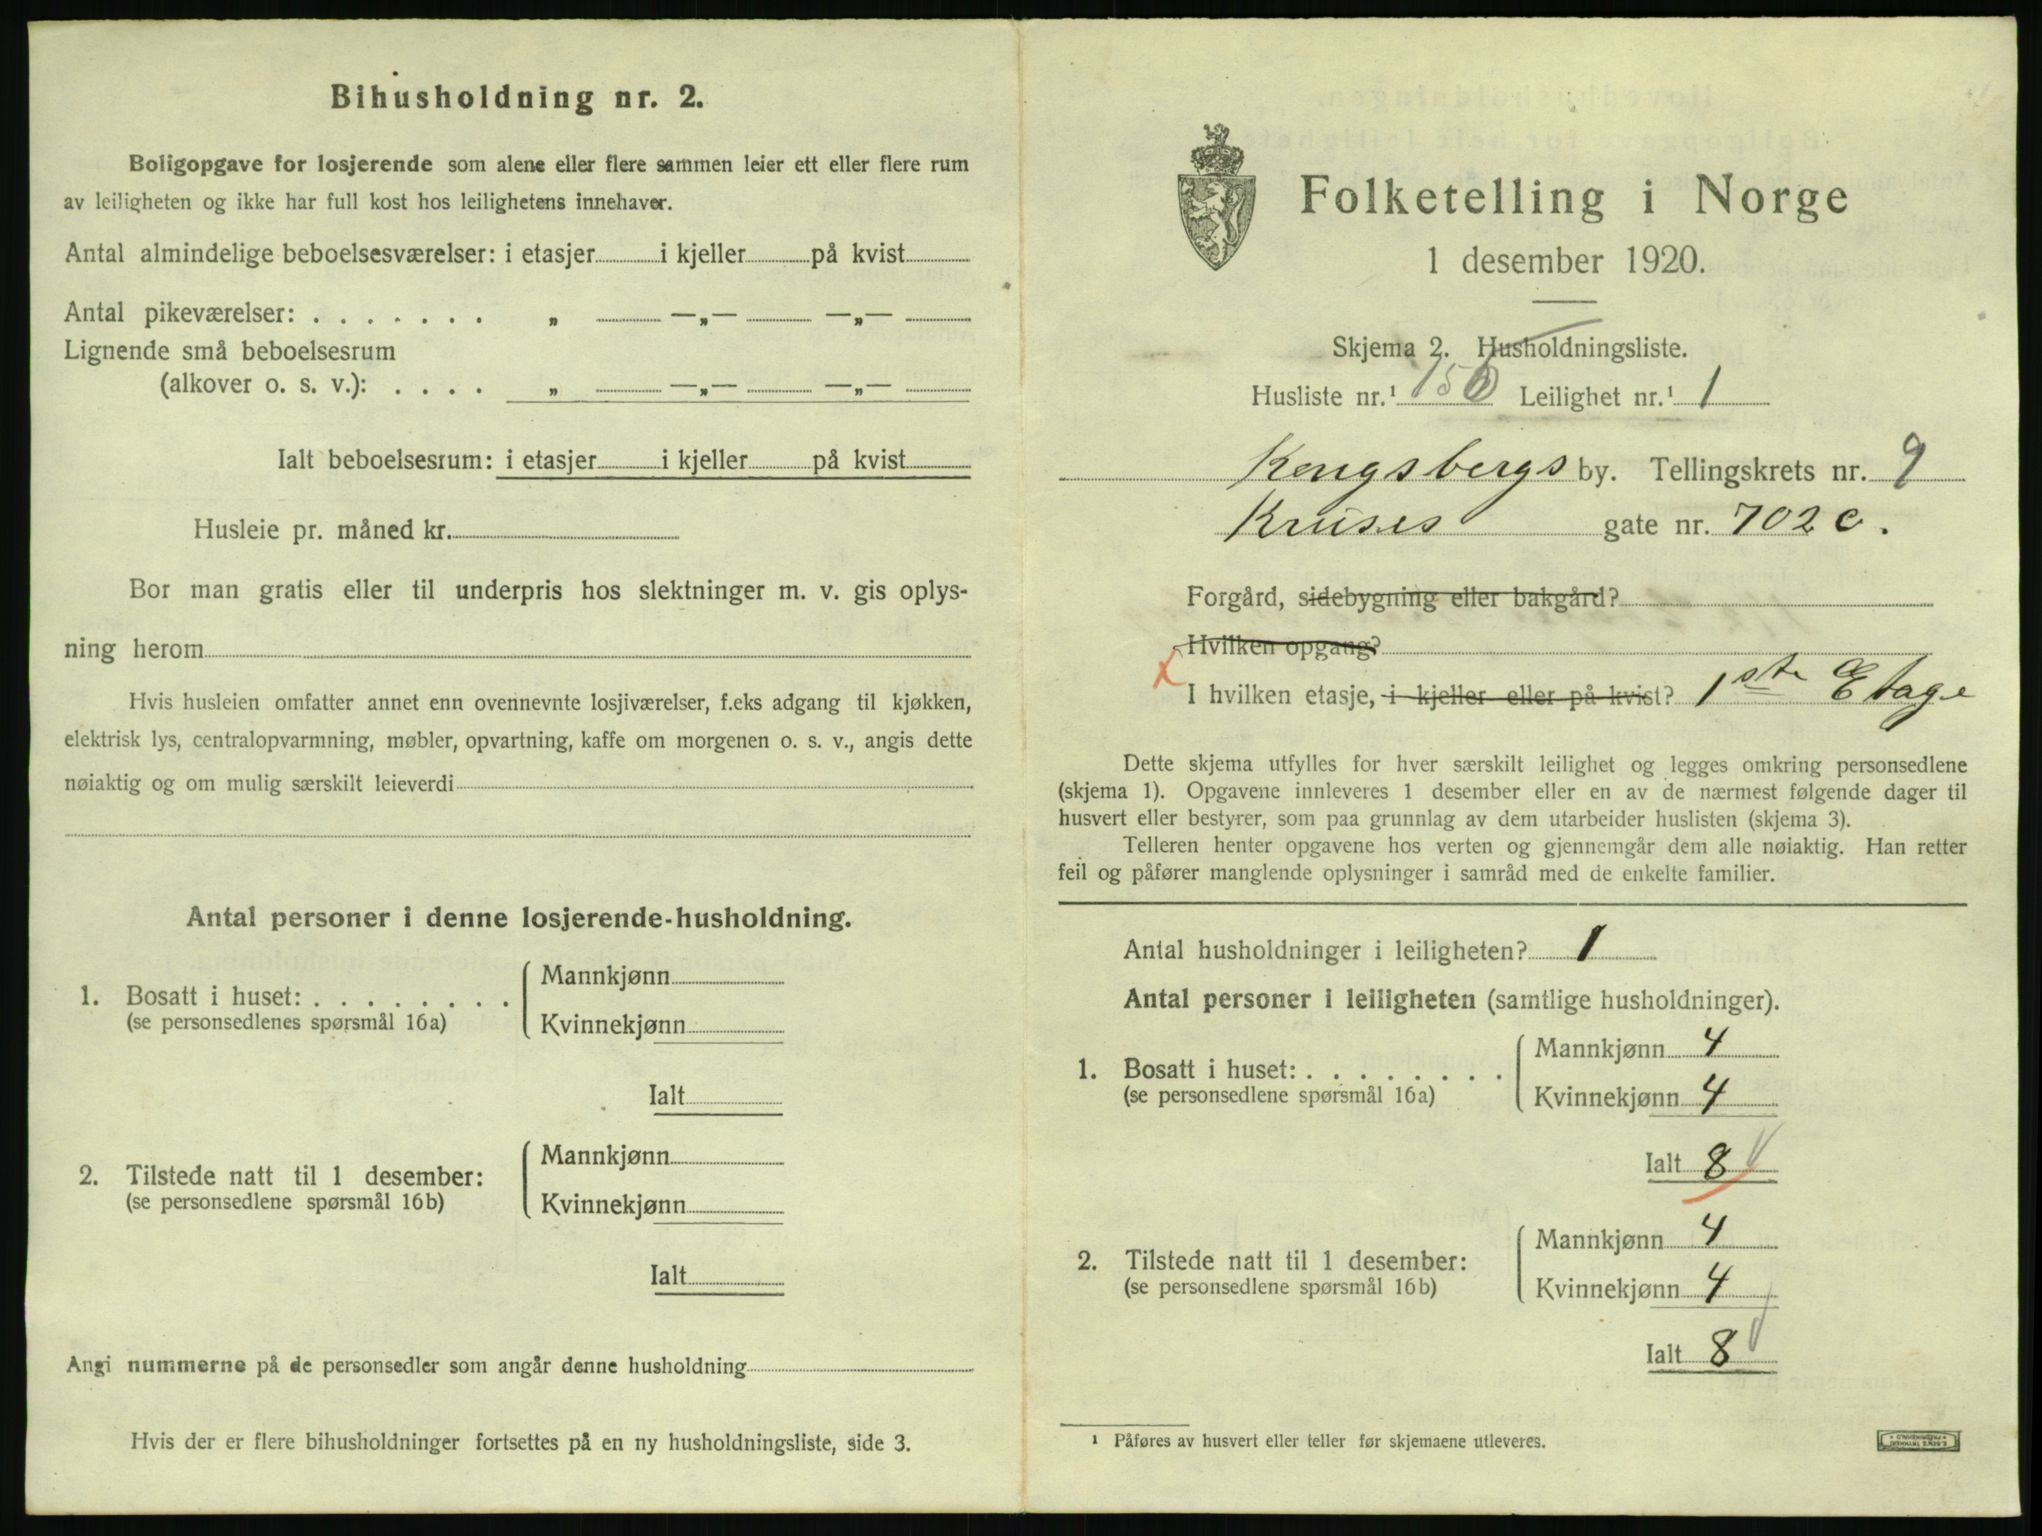 Bihusholdning nr. 2.
Boligopgave for losjerende som alene eller flere sammen leier ett eller flere rum
av leiligheten og ikke har full kost hos leilighetens innehaver.
Antal almindelige beboelsesværelser: i etasjer i kjeller på kvist
Antal pikeværelser: . . . . . . . „ —„— —„—
Lignende små beboelsesrum
(alkover o. s. v.): . . . . „ —„— —„—
Ialt beboelsesrum: i etasjer i kjeller på kvist
Husleie pr. måned kr.
Bor man gratis eller til underpris hos slektninger m. v. gis oplys-
ning herom
Hvis husleien omfatter annet enn ovennevnte losjiværelser, f.eks adgang til kjøkken,
elektrisk lys, centralopvarmning, møbler, opvartning, kaffe om morgenen o. s. v., angis dette
nøiaktig og om mulig særskilt leieverdi
Antal personer i denne losjerende-husholdning.
1. Bosatt i huset: . . . . . . . .
(se personsedlenes spørsmål 16a)
Mannkjønn
Kvinnekjønn
Ialt
2. Tilstede natt til 1 desember:
(se personsedlene spørsmål 16b)
Mannkjønn
Kvinnekjønn
Ialt
Angi nummerne på de personsedler som angår denne husholdning
Hvis der er flere bihusholdninger fortsettes på en ny husholdningsliste, side 3.
Folketelling i Norge
1 desember 1920.
Skjema 2. Husholdningsliste.
Husliste nr.¹ Leilighet nr.¹ 1
Kongsbergs by. Tellingskrets nr. 9
Kruses gate nr. 702 c.
Forgård, sidebygning eller bakgård?
Hvilken opgang?
I hvilken etasje, i kjeller eller på kvist? 1ste Etage
Dette skjema utfylles for hver særskilt leilighet og legges omkring personsedlene
(skjema 1). Opgavene innleveres 1 desember eller en av de nærmest følgende dager til
husvert eller bestyrer, som paa grunnlag av dem utarbeider huslisten (skjema 3).
Telleren henter opgavene hos verten og gjennemgår dem alle nøiaktig. Han retter
feil og påfører manglende oplysninger i samråd med de enkelte familier.
Antal husholdninger i leiligheten? 1
Antal personer i leiligheten (samtlige husholdninger).
1. Bosatt i huset: . . . . . . . .
(se personsedlene spørsmål 16a)
Mannkjønn 4
Kvinnekjønn 4
Ialt 8
2. Tilstede natt til 1 desember:
(se personsedlene spørsmål 16b)
Mannkjønn 4
Kvinnekjønn 4
Ialt 8
¹ Påføres av husvert eller teller før skjemaene utleveres.